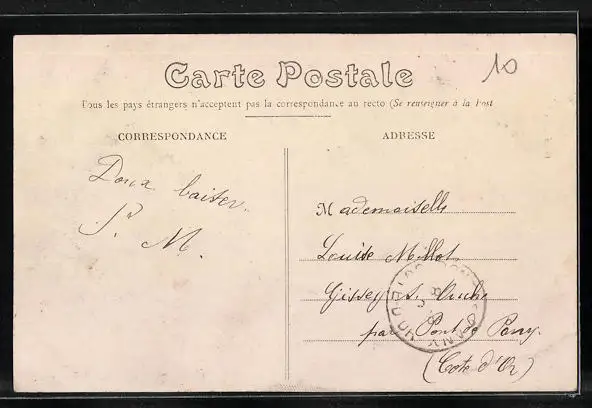 10
Carte Postale
Tous les pays étrangers n'acceptent pas la correspondance au recto (Se renseigner à la Post
CORRESPONDANCE
ADRESSE
Doux baiser.
M.
Mademoiselle
Louise Millot
Gissey s. Ouche
par Pont de Pany.
(Cote d'Or)